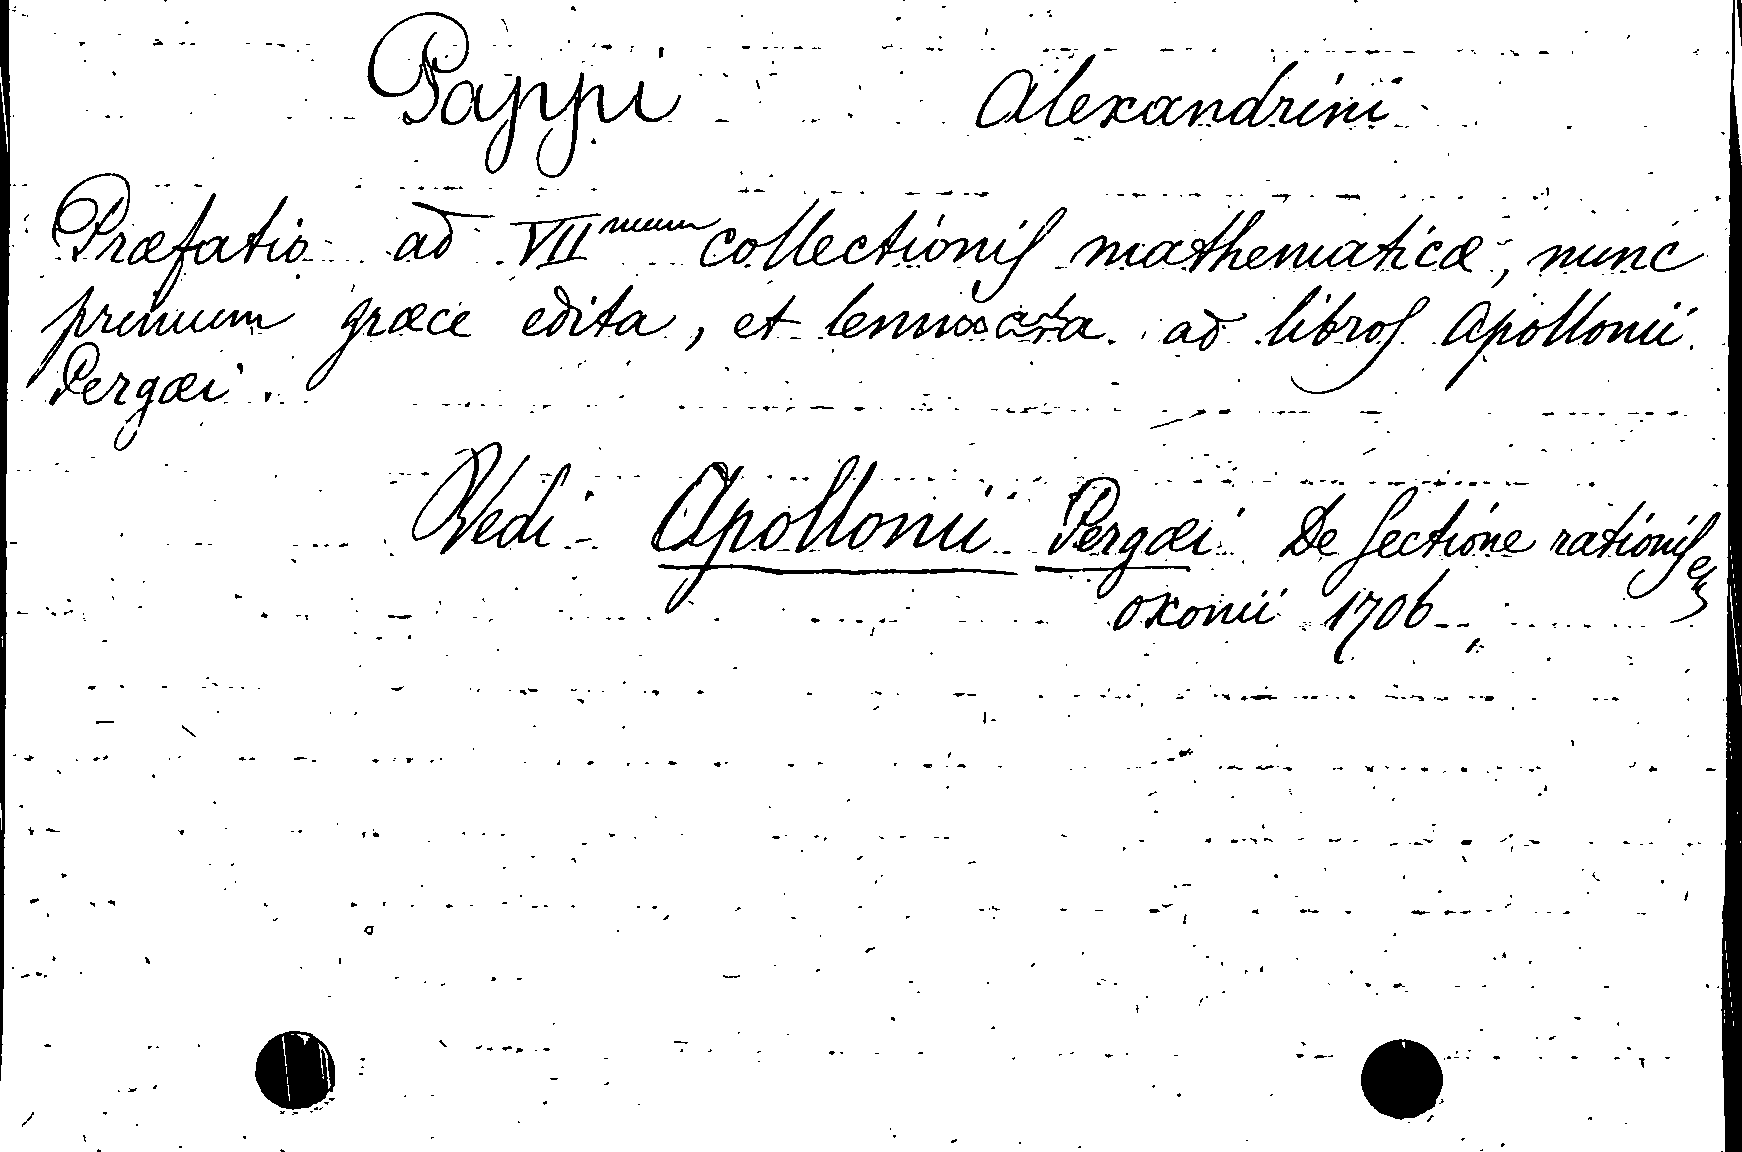 Pappi Alexandrini
Præfatio ad VII mum collectionis mathematicæ, nunc
primum græce edita, et lemmata ad libros Apollonii
Pergæi.
Vedi Apollonii Pergæi De Sectione rationis
Oxonii 1706